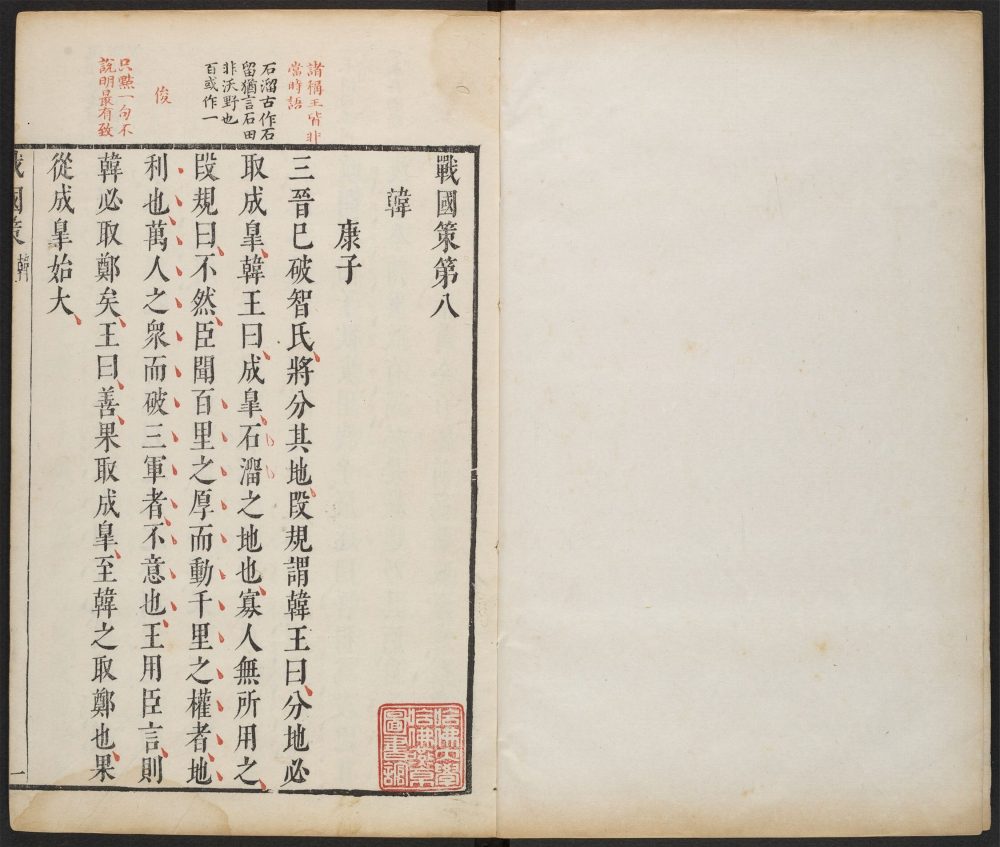 戰國策第八
韓
康子
三晉已破智氏將分其地段規謂韓王曰分地必
取成臯韓王曰成臯石溜之地也寡人無所用之
段規曰不然臣聞百里之厚而動千里之權者地
利也萬人之衆而破三軍者不意也王用臣言則
韓必取鄭矣王曰善果取成臯至韓之取鄭也果
從成臯始大
諸稱王皆非
當時語
石溜古作石
留猶言石田
非沃野也
百或作一
俊
只點一句不
說明最有致
戰國策
韓
一
哈佛大學
哈佛燕京
圖書館